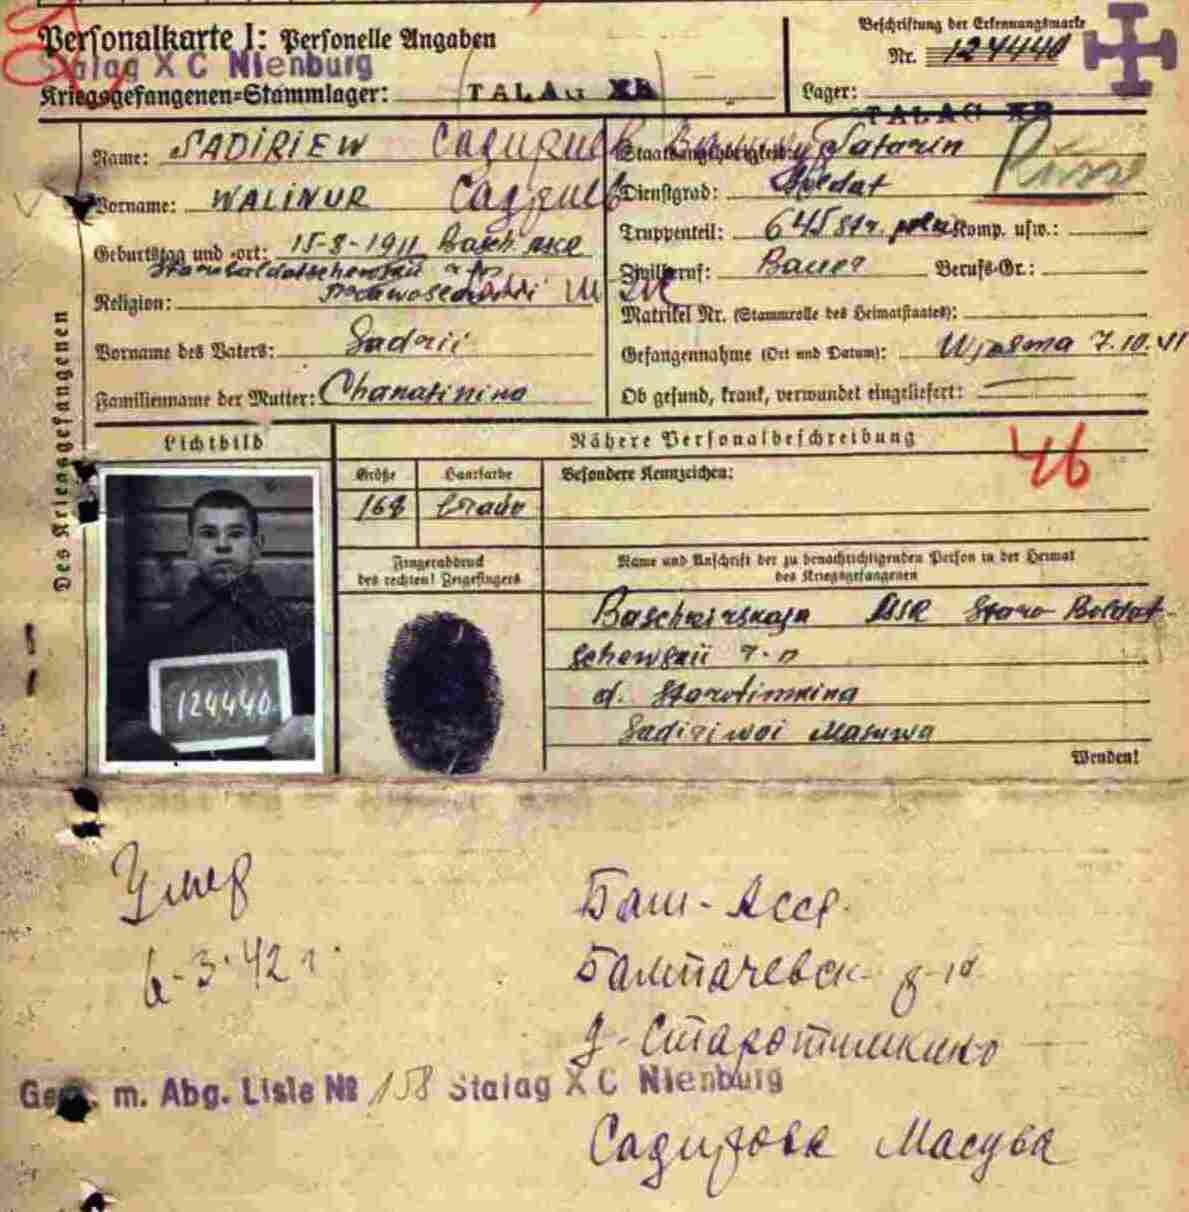 Personalkarte I: Personelle Angaben
Stalag X C Nienburg
Kriegsgefangenen=Stammlager: TALAG XB
Beschriftung der Erkennungsmarke
Nr. 124440
Lager: TALAG XB
Des Kriegsgefangenen
Name: SADIRIEW
Vorname: WALINUR
Geburtstag und =ort: 15-8-1911 Basch. ASSR
Religion:
Vorname des Vaters: Sadrii
Familienname der Mutter: Chanatinina
Staatsangehörigkeit: Tatarin
Russe
Dienstgrad: Soldat
Truppenteil: 645 Str. polk Komp. usw.:
Zivilberuf: Bauer Berufs-Gr.:
Matrikel Nr. (Stammrolle des Heimatstaates):
Gefangennahme (Ort und Datum): Wjasma 7.10.41
Ob gesund, krank, verwundet eingeliefert:
Lichtbild
124440
Nähere Personalbeschreibung
46
Größe Haarfarbe Besondere Kennzeichen:
168
Fingerabdruck
des rechten! Zeigefingers
Name und Anschrift der zu benachrichtigenden Person in der Heimat
des Kriegsgefangenen
Baschkirskaja ASSR Staro Boldat-
schewskii r-n
d. Starotimkina
Sadiriwoi Masuwa
Wenden!
Умер
6-3-42 г.
Баш-Асср.
Балтачевск р-н
д-Старотимкино
Gem. m. Abg. Liste № 158 Stalag X C Nienburg
Садирова Масува